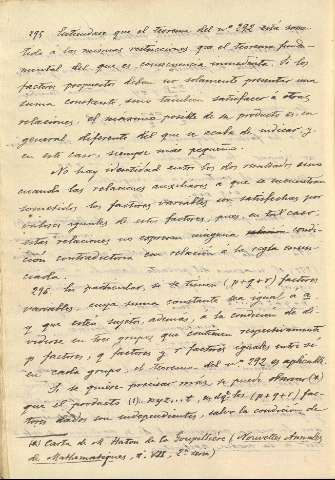 295 Entiéndase que el teorema del nº 292 está some-
tido á las mismas restricciones que el teorema funda-
mental del que es consecuencia inmediata. Si los
factores propuestos deben no solamente presentar una
suma constante, sino tambien satisfacer á otras
relaciones, el máximo posible de su producto es, en
general, diferente del que se acaba de indicar, y
en este caso, siempre mas pequeño.
No hay identidad entre los dos resultados sino
cuando las relaciones auxiliares á que se encuentran
sometidos los factores variables son satisfechas por
valores iguales de estos factores, pues, en tal caso,
estas relaciones no expresan ninguna condi-
cion contradictoria con relación á la regla enun-
ciada.
296 En particular, si se tienen (p+q+r) factores
variables, cuya suma constante sea igual a a
y que esten sujetos, ademas, á la condicion de di-
vidirse en tres grupos que contienen respectivamente
p factores, q factores y r factores iguales entre si
en cada grupo, el teorema del nº 292 es aplicable.
Si se quiere precisar mas, se puede observar (*)
que el producto (1) los (p+q+r) fac-
tores dados son independientes, salvo la condicion de
(*) Carta de M. Haton de la Goupillière (Nouvelles Annales
de Mathématiques, t. VIII, 2ª serie)